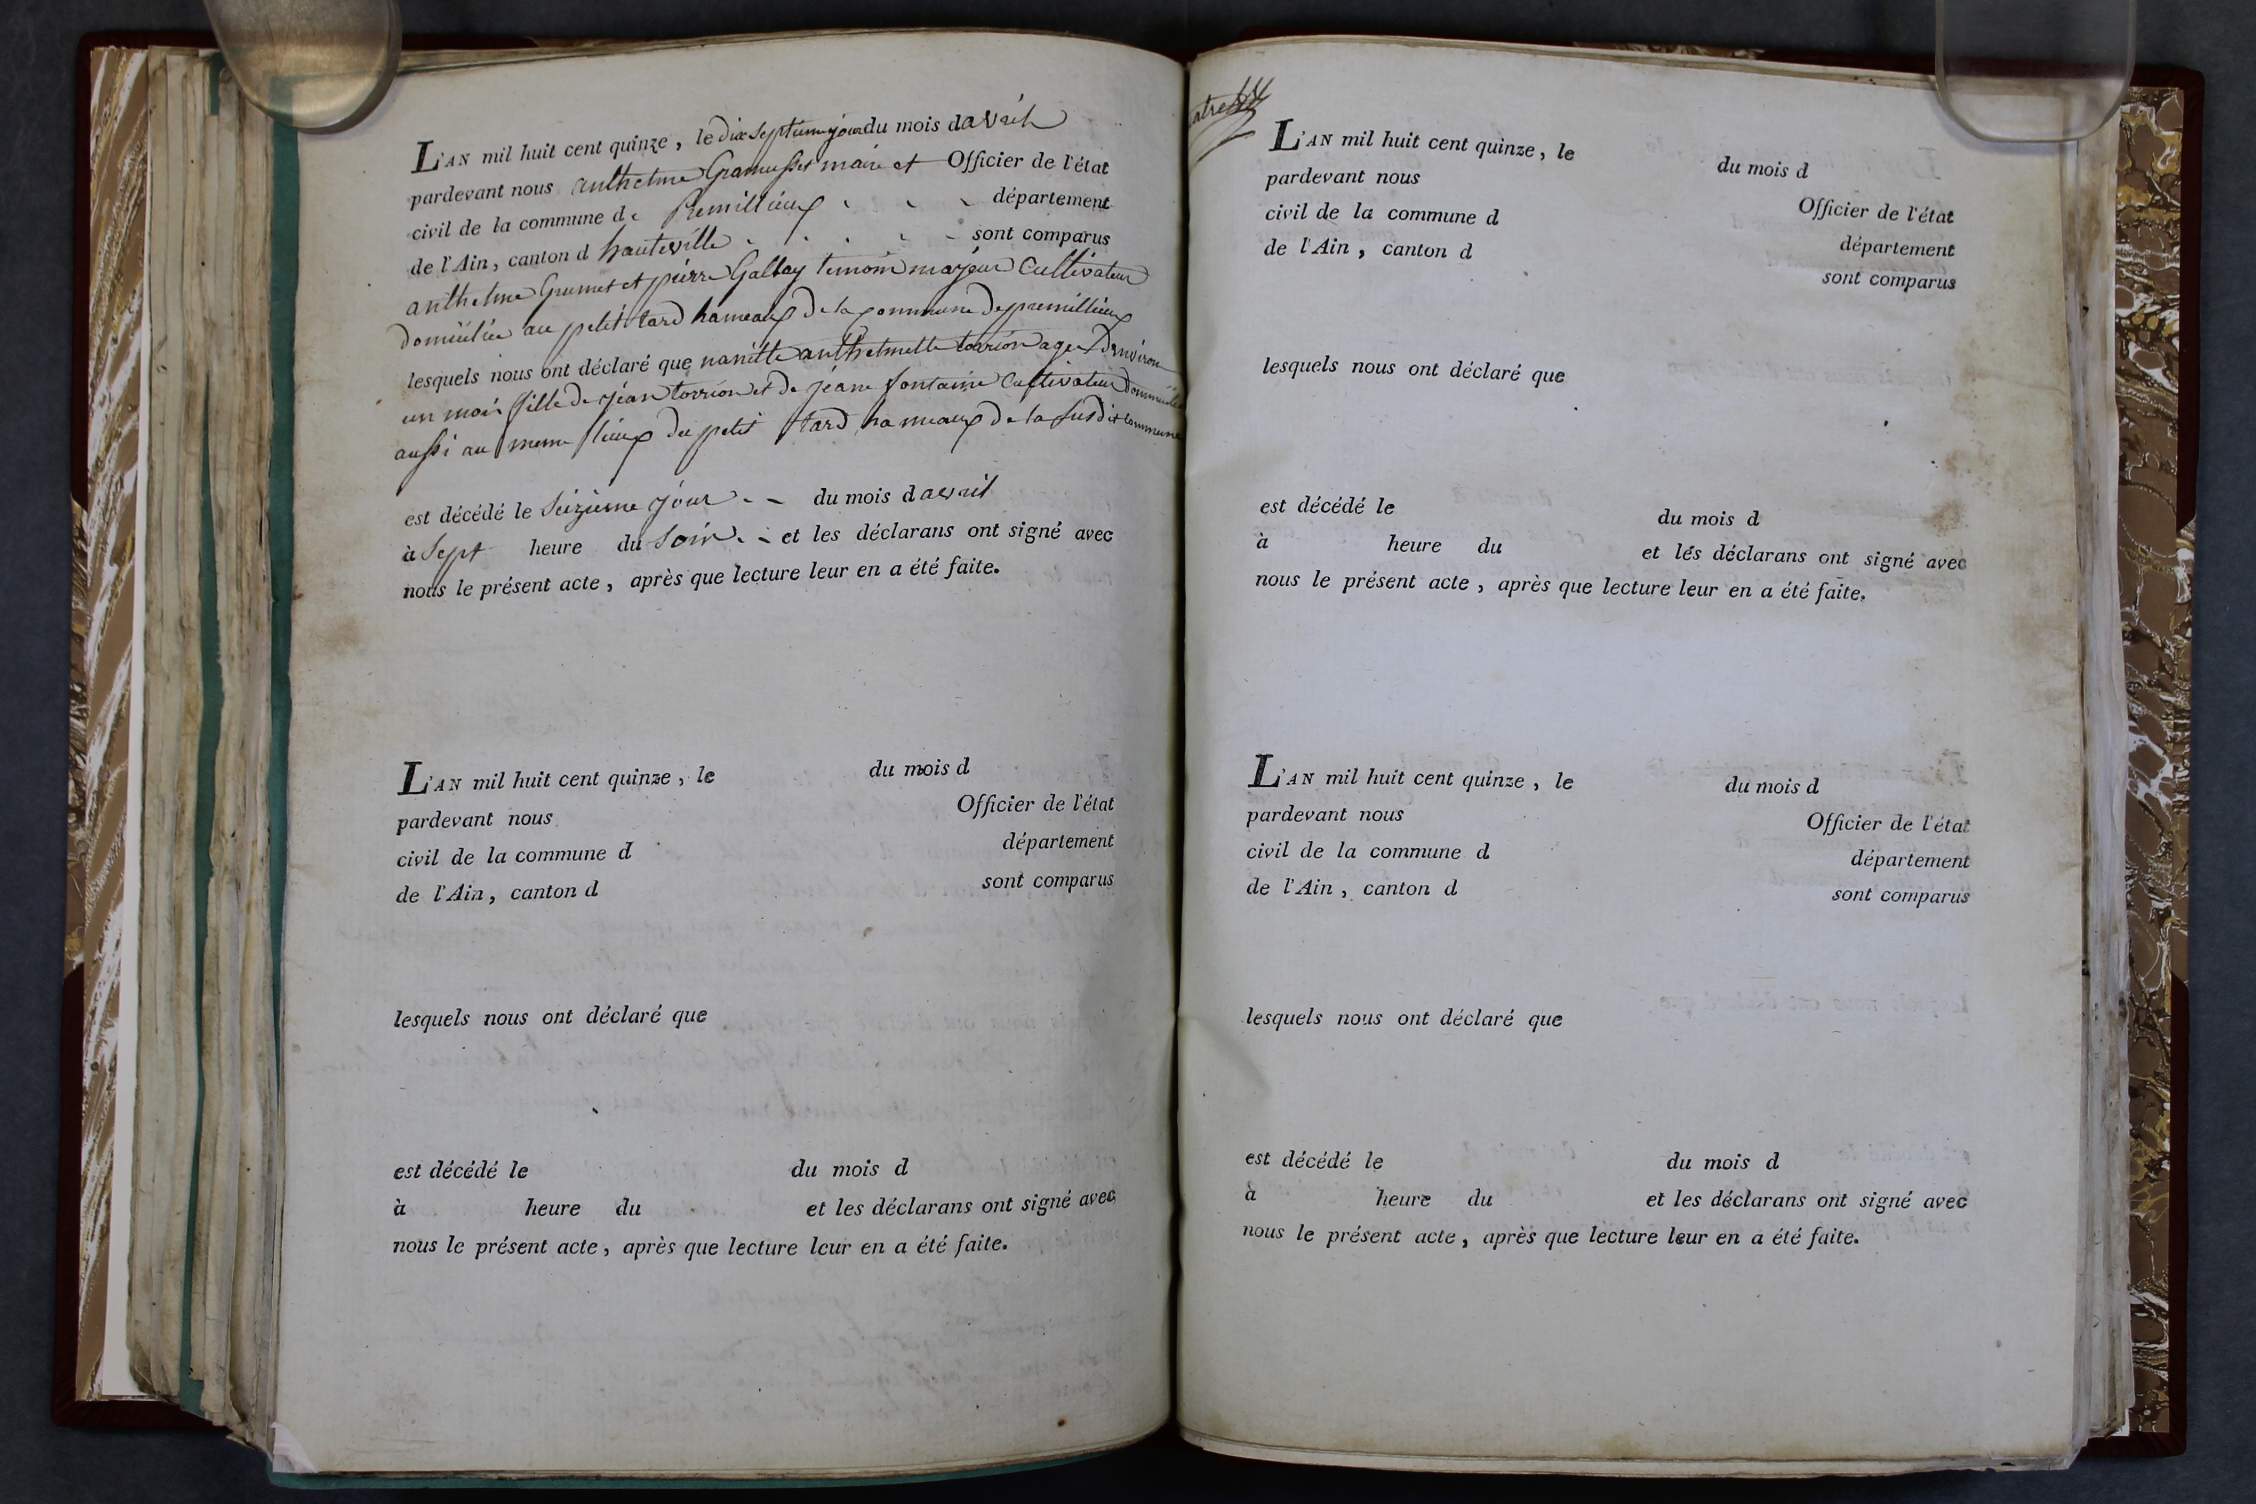 L'AN mil huit cent quinze, le dix septieme jour du mois davril
pardevant nous anthelme Gramusset maire et Officier de l'état
civil de la commune de Premillieux département
de l'Ain, canton d hauteville sont comparus
anthelme Grumet et pierre Gallay temoin majeur Cultivateur
domicilié au petit tard hameaux de la Commune de premillieux
lesquels nous ont déclaré que nanette anthelmette torrion agee Denviron
un mois fille de jéan torrion et de jéane fontaine Cultivateur domicilié
aussi au meme lieux du petit tard hameaux de la susdit commune
est décédé le Seizieme jour du mois d avril
à Sept heure du Soir et les déclarans ont signé avec
nous le présent acte, après que lecture leur en a été faite.
L'AN mil huit cent quinze, le du mois d
pardevant nous Officier de l'état
civil de la commune d département
de l'Ain, canton d sont comparus
lesquels nous ont déclaré que
est décédé le du mois d
à heure du et les déclarans ont signé avec
nous le présent acte, après que lecture leur en a été faite.
L'AN mil huit cent quinze, le du mois d
pardevant nous Officier de l'état
civil de la commune d département
de l'Ain, canton d sont comparus
lesquels nous ont déclaré que
est décédé le du mois d
à heure du et les déclarans ont signé avec
nous le présent acte, après que lecture leur en a été faite.
L'AN mil huit cent quinze, le du mois d
pardevant nous Officier de l'état
civil de la commune d département
de l'Ain, canton d sont comparus
lesquels nous ont déclaré que
est décédé le du mois d
à heure du et les déclarans ont signé avec
nous le présent acte, après que lecture leur en a été faite.